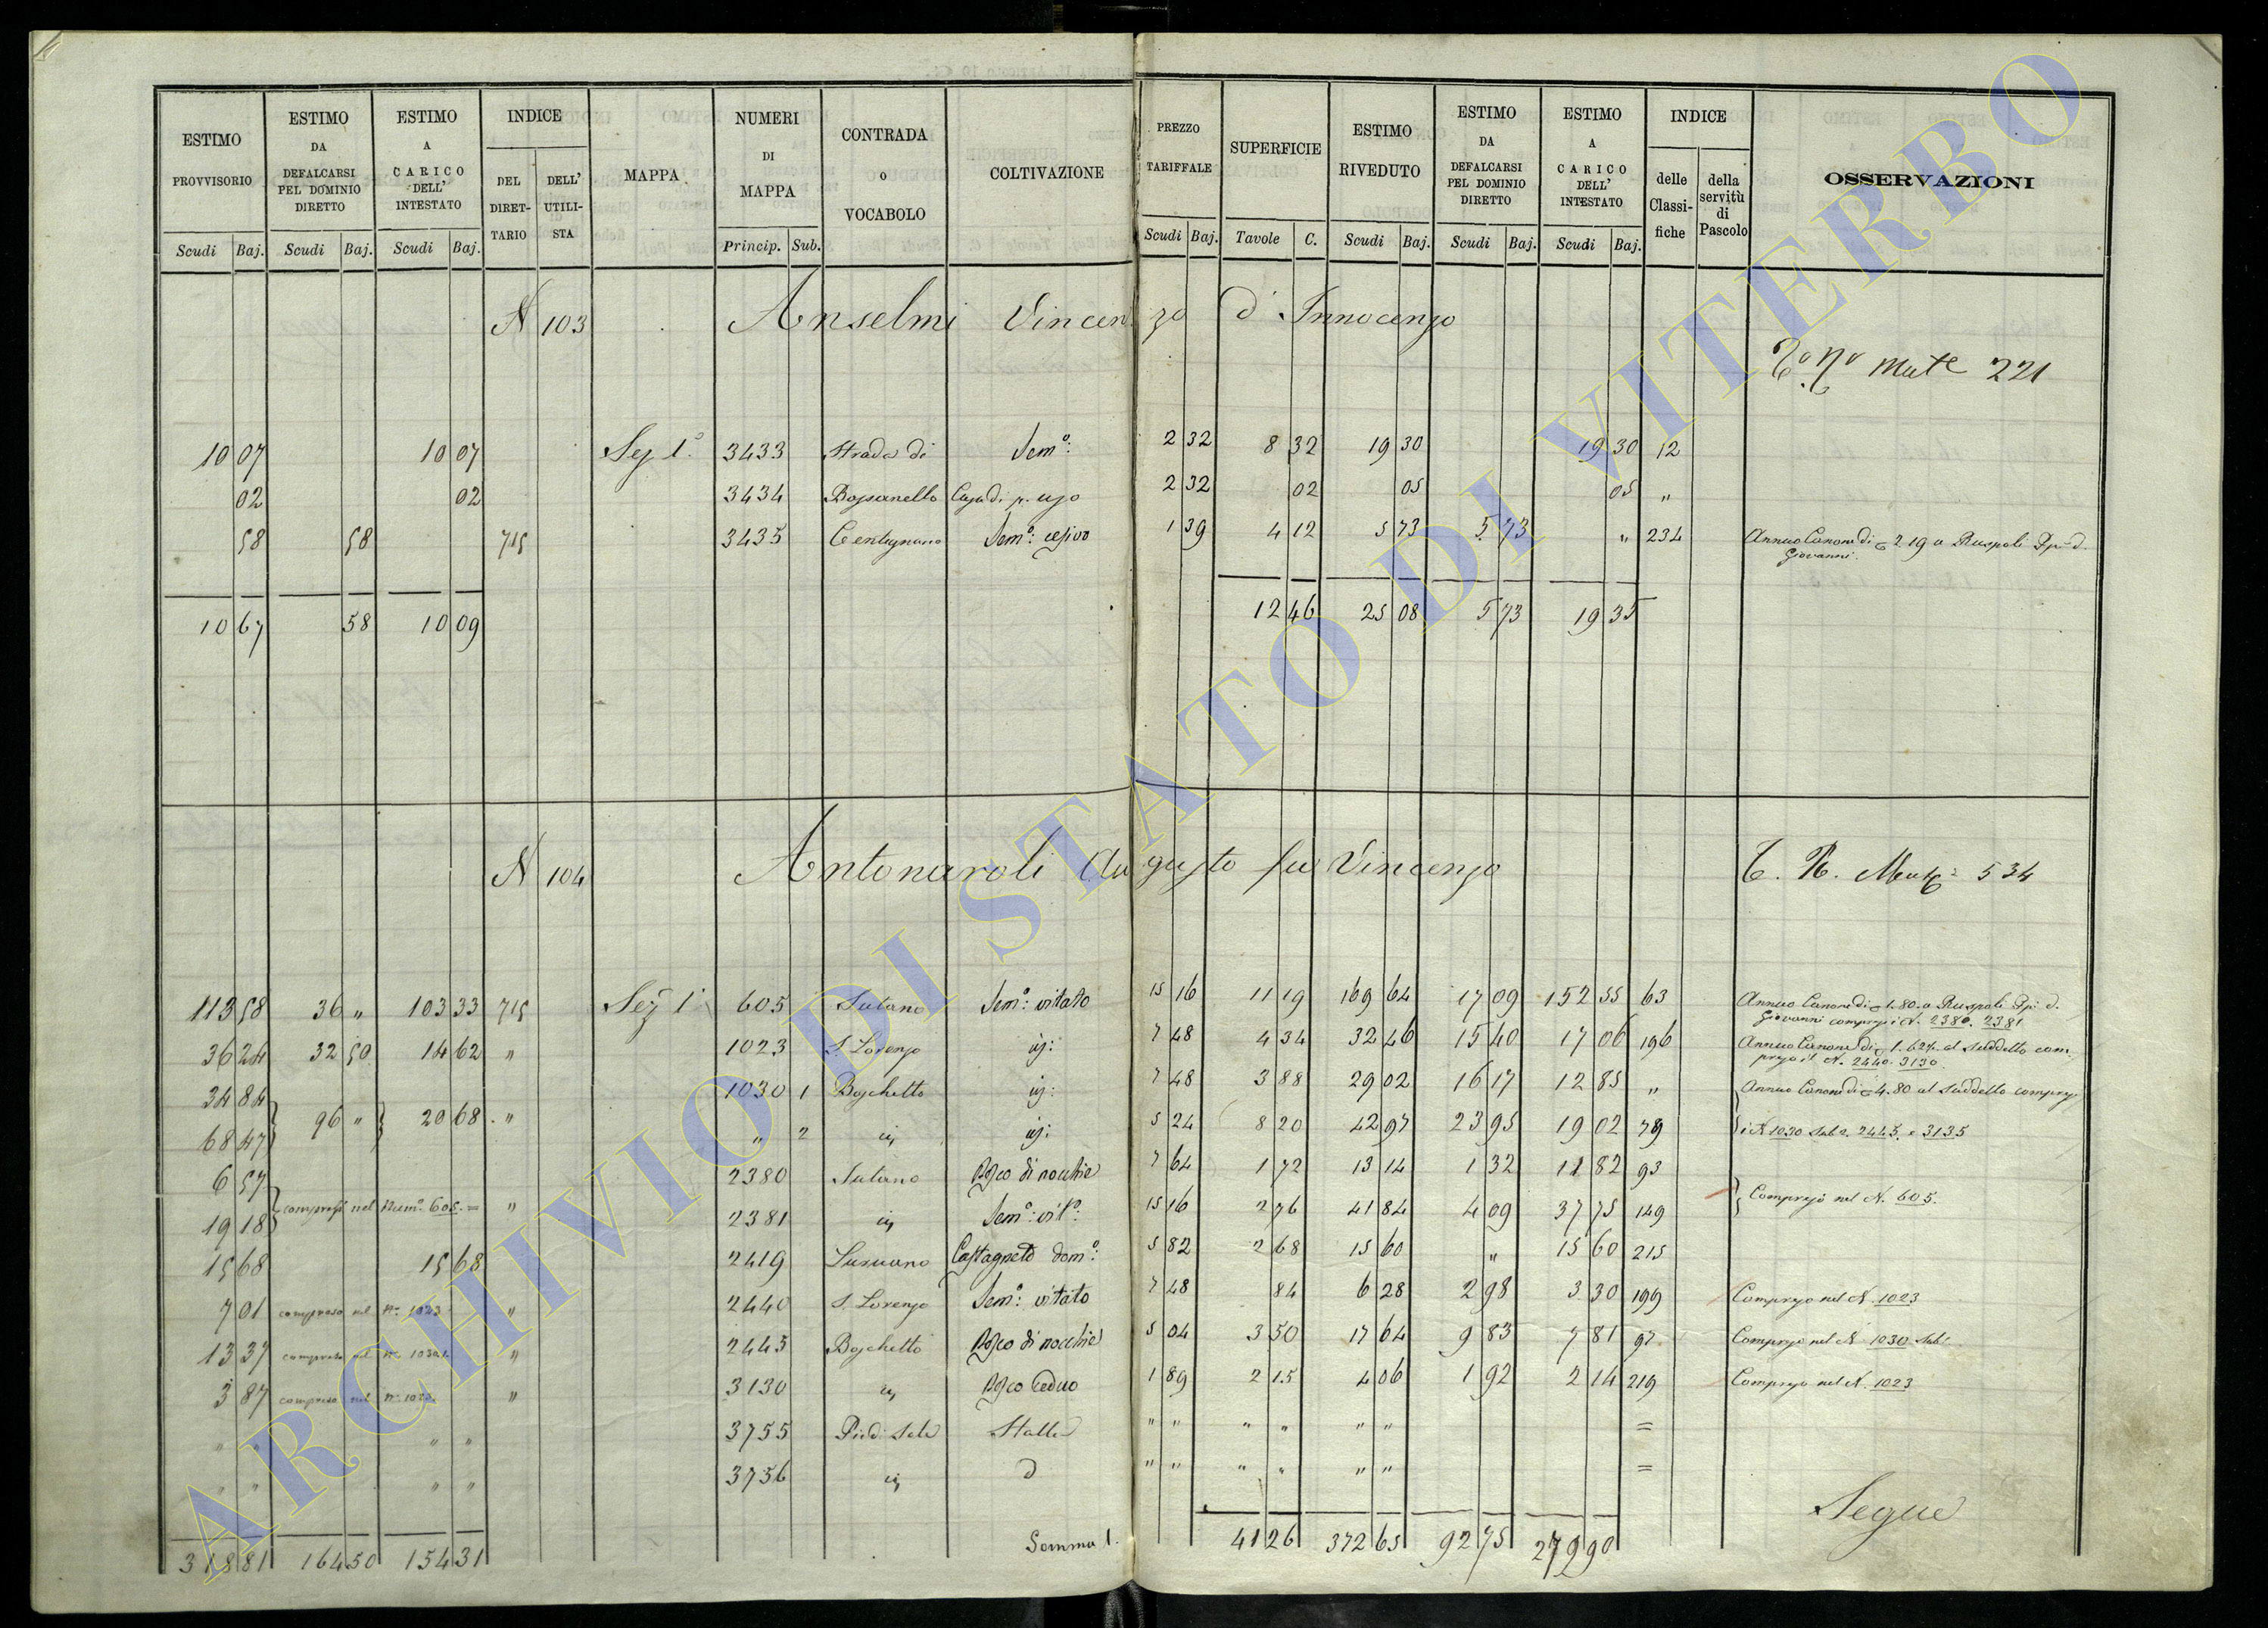 ESTIMO PROVVISORIO Scudi Baj. | ESTIMO DA DEFALCARSI PEL DOMINIO DIRETTO Scudi Baj. | ESTIMO A CARICO DELL' INTESTATO Scudi Baj. | INDICE DEL DIRET-TARIO | DELL' UTILI-STA | MAPPA | NUMERI DI MAPPA Princip. Sub. | CONTRADA O VOCABOLO | COLTIVAZIONE | PREZZO TARIFFALE Scudi Baj. | SUPERFICIE Tavole C. | ESTIMO RIVEDUTO Scudi Baj. | ESTIMO DA DEFALCARSI PEL DOMINIO DIRETTO Scudi Baj. | ESTIMO A CARICO DELL' INTESTATO Scudi Baj. | INDICE delle Classi-fiche | della servitù di Pascolo | OSSERVAZIONI
N 103 Anselmi Vincenzo d'Innocenzo
Mute 221
10 07 | 10 07 | Sez 1° | 3433 | Strada di | Semo: | 2 32 | 8 32 | 19 30 | 19 30 | 12
02 | 02 | 3434 | Bassanello | Casa di p. uso | 2 32 | 02 | 05 | 05 | "
58 | 58 | 715 | 3435 | Centignano | Semo: cesivo | 1 39 | 4 12 | 5 73 | 5 73 | " | 234 | Annuo Canone di 2 19 a Ruspoli Ppe d.
Giovanni.
10 67 | 58 | 10 09 | 12 46 | 25 08 | 5 73 | 19 35
N 104 Antonaroli Augusto fu Vincenzo
C. R. Mute 534
113 58 | 36 " | 103 33 | 715 | Sez 1° | 605 | Sutano | Semo: vitato | 15 16 | 11 19 | 169 64 | 17 09 | 152 55 | 63 | Annuo Canone di 1.80 a Ruspoli Ppe d.
Giovanni compresi i N. 2380. 2381
36 24 | 32 50 | 14 62 | " | 1023 | S. Lorenzo | id: | 7 48 | 4 34 | 32 46 | 15 40 | 17 06 | 196 | Annuo Canone di 1.62½ al suddetto com-
preso il N. 2440. 3130
34 84 | 96 " | 20 68 | " | 1030 | 1 | Boschetto | id: | 7 48 | 3 88 | 29 02 | 16 17 | 12 85 | " | Annuo Canone di 4.80 al suddetto compresi
68 47 | " | 2 | id | id: | 5 24 | 8 20 | 42 97 | 23 95 | 19 02 | 79 | i N 1030 sub 2. 2443. e 3135
6 57 | compresi nel Num° 605 = | " | 2380 | Sutano | Bosco di nocchie | 7 64 | 1 72 | 13 14 | 1 32 | 11 82 | 93 | Compresi nel N. 605.
19 18 | 2381 | id | Semo: vito: | 15 16 | 2 76 | 41 84 | 4 09 | 37 75 | 149
15 68 | 15 68 | 2419 | Castagneto domo: | 5 82 | 2 68 | 15 60 | " | 15 60 | 215
7 01 | compreso nel No 1023 | " | 2440 | S. Lorenzo | Semo: vitato | 7 48 | 84 | 6 28 | 2 98 | 3 30 | 199 | Compreso nel N. 1023
13 37 | compreso nel No 1030.1. | " | 2443 | Boschetto | Bosco di nocchie | 5 04 | 3 50 | 17 64 | 9 83 | 7 81 | 97 | Compreso nel N 1030 sub 1
3 87 | compreso nel No 1023. | " | 3130 | id | Bosco ceduo | 1 89 | 2 15 | 4 06 | 1 92 | 2 14 | 219 | Compreso nel N. 1023
" " | " " | 3755 | Piedi Sala | Stalla | " " | " " | " " | =
" " | " " | 3756 | id | D | " " | " " | " " | =
Segue
318 81 | 164 50 | 154 31 | Somma 1. | 41 26 | 372 65 | 92 75 | 279 90
ARCHIVIO DI STATO DI VITERBO